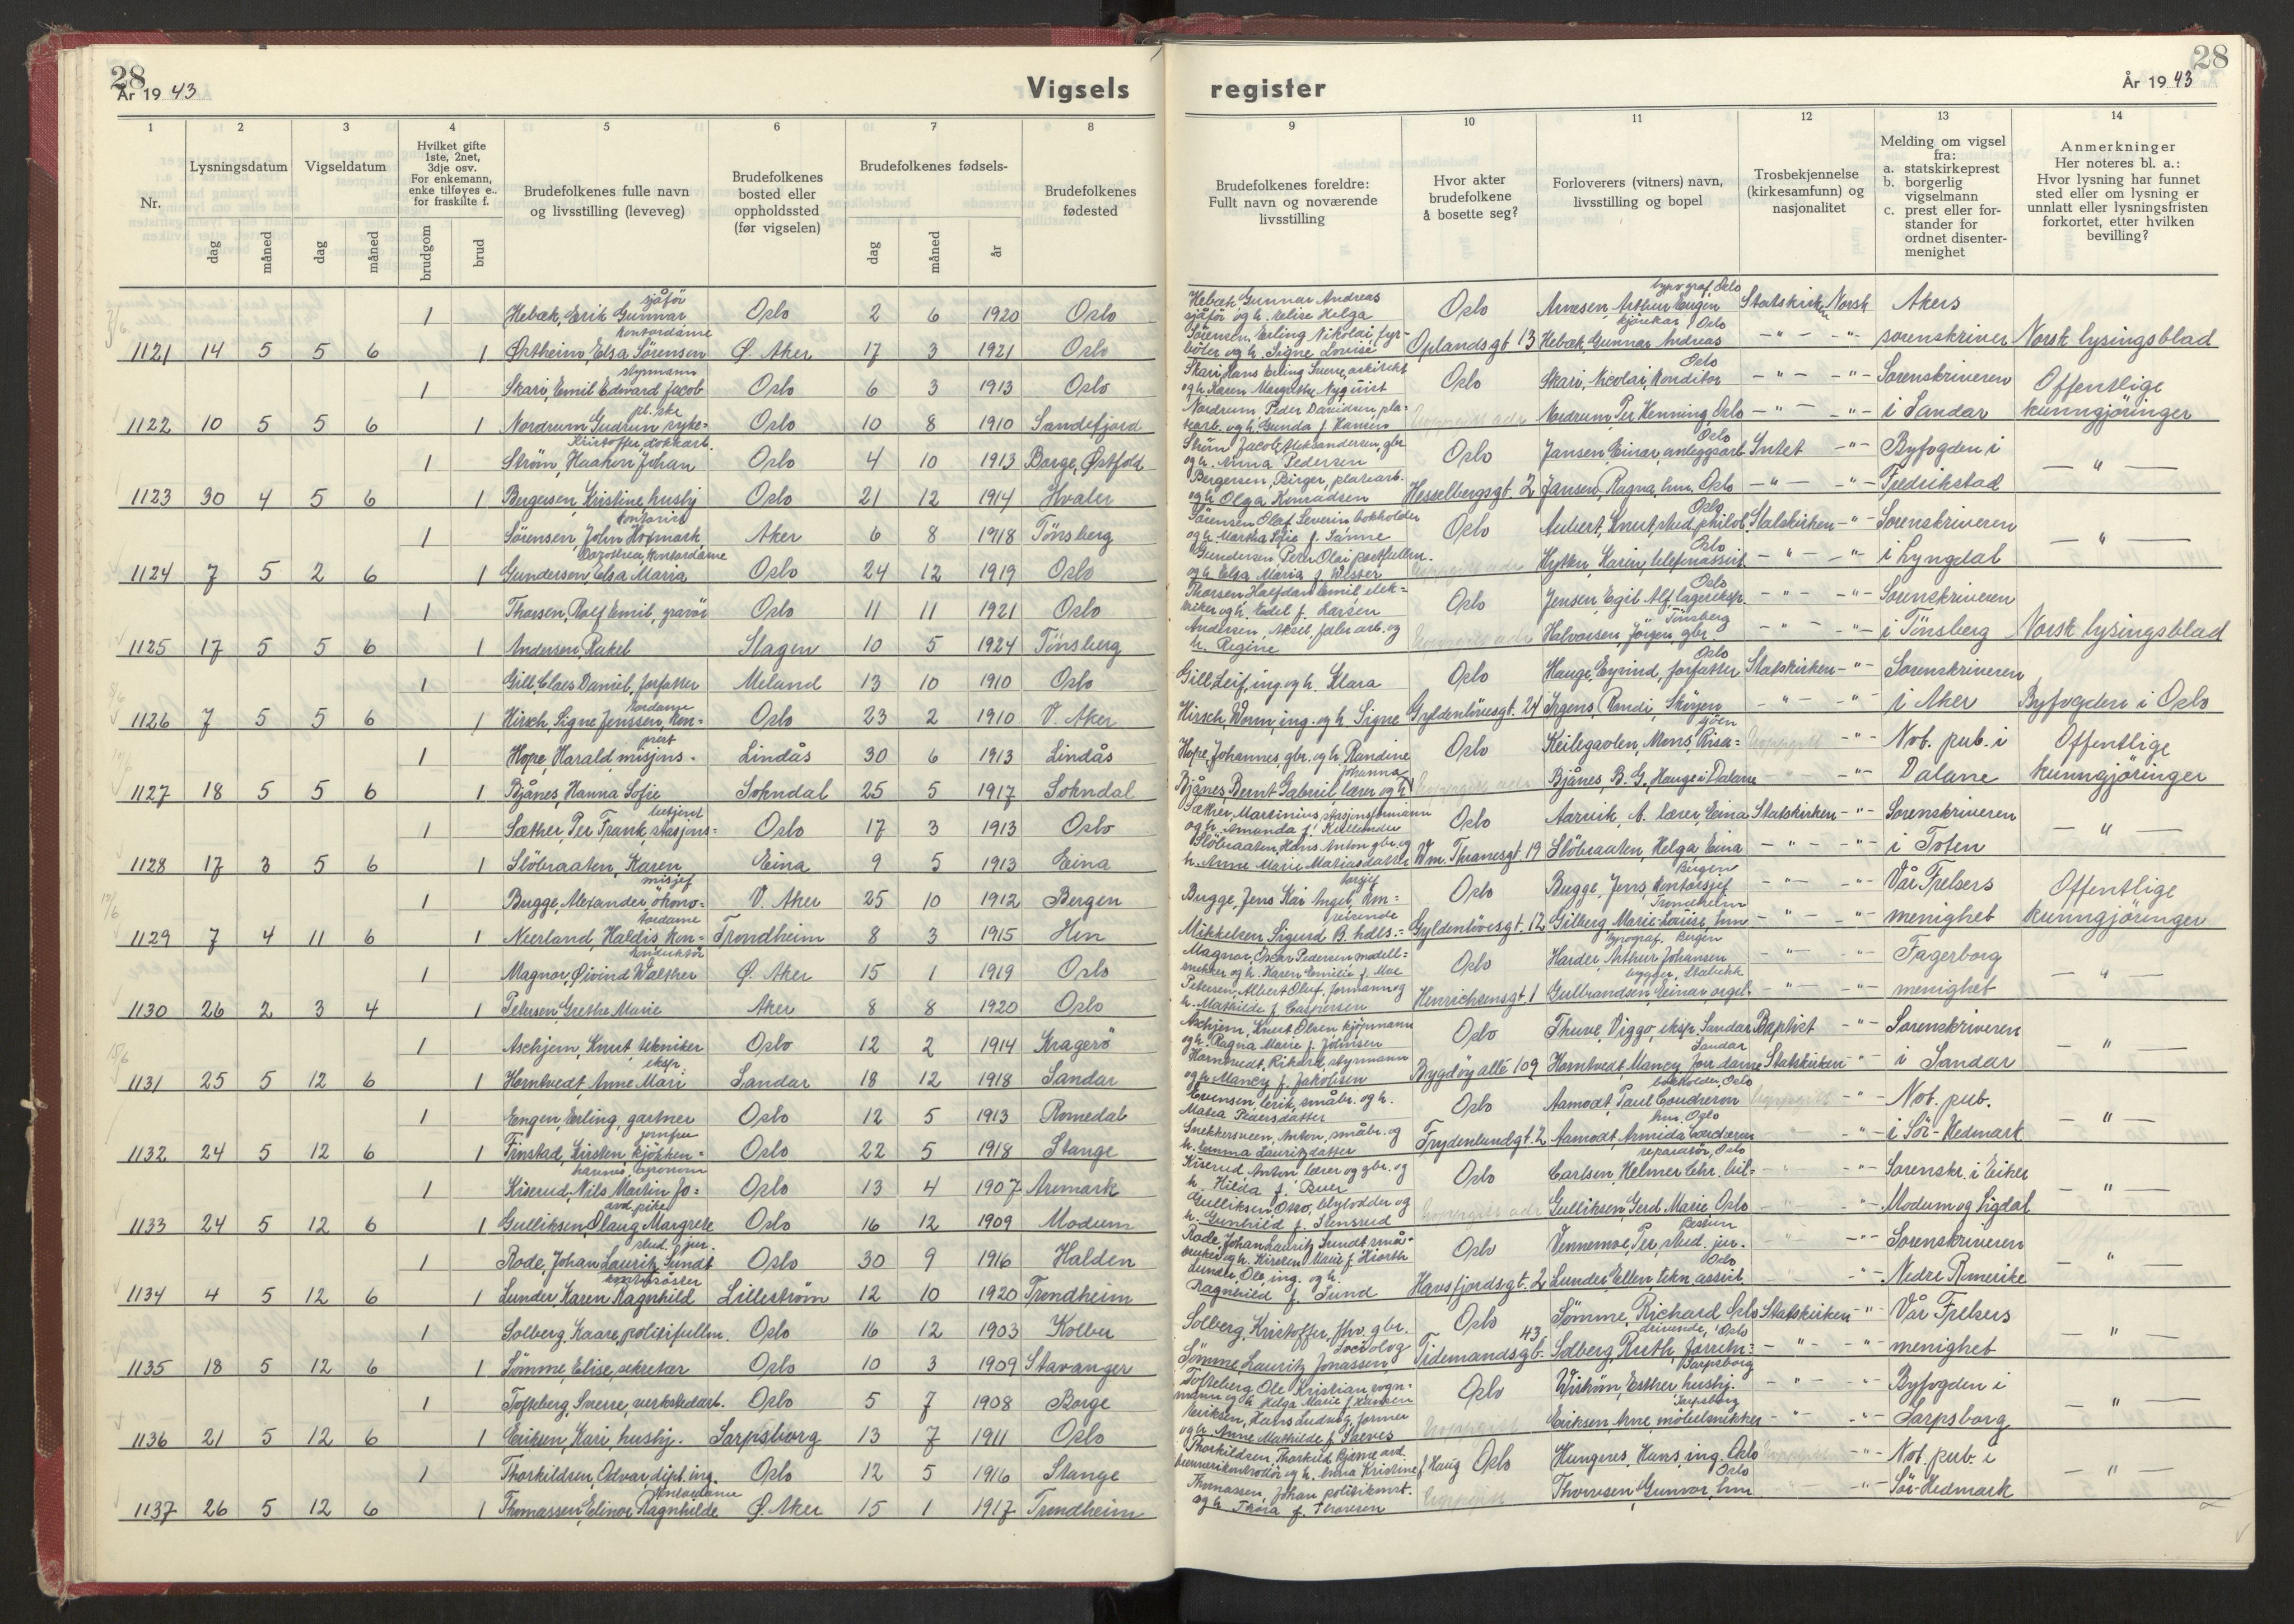 28
År 19 43
Vigsels
1 2 3 4 5 6 7 8
Nr.
Lysningsdatum
Vigseldatum
Hvilket gifte
1ste, 2net,
3dje osv.
For enkemann,
enke tilføyes e.,
for fraskilte f.
Brudefolkenes fulle navn
og livsstilling (leveveg)
Brudefolkenes
bosted eller
oppholdssted
(før vigselen)
Brudefolkenes fødsels-
Brudefolkenes
fødested
dag måned dag måned brudgom brud dag måned år
1 Hebæk, Erik Gunnar sjåfør Oslo 2 6 1920 Oslo
1121 14 5 5 6 1 Østheim, Elsa Sörensen kontordame Ø. Aker 17 3 1921 Oslo
1 Skari, Emil Edward Jacob styrmann Oslo 6 3 1913 Oslo
1122 10 5 5 6 1 Nordrum, Gudrun, syke= pl.ske Oslo 10 8 1910 Sandefjord
1 Ström, Haakon Johan Kristoffer, dokkarb. Oslo 4 10 1913 Borge, Østfold
1123 30 4 5 6 1 Bergersen, Kristine, hushj Oslo 21 12 1914 Hvaler
1 Sörensen, John Hofmark kontorist Aker 6 8 1918 Tönsberg
1124 7 5 2 6 1 Gundersen, Elsa Maria Dorothea, kontordame Oslo 24 12 1919 Oslo
1 Thorsen, Rolf Emil, gravör Oslo 11 11 1921 Oslo
1125 17 5 5 6 1 Andersen, Rakel Slagen 10 5 1924 Tönsberg
1 Gill, Claes Daniel, forfatter Meland 13 10 1910 Oslo
1126 7 5 5 6 1 Hirsch, Signe Jenssen, kon= tordame Oslo 23 2 1910 V. Aker
1 Hope, Harald, misjons- prest Lindås 30 6 1913 Lindås
1127 18 5 5 6 1 Bjånes, Hanna Sofie Sokndal 25 5 1917 Sokndal
1 Sæther, Per Frank, stasjons= betjent Oslo 17 3 1913 Oslo
1128 17 3 5 6 1 Slöbraaten, Karen Eina 9 5 1913 Eina
1 Bugge, Alexander, økono= misjef V. Aker 25 10 1912 Bergen
1129 7 4 11 6 1 Neerland, Haldis, kon= tordame Trondheim 8 3 1915 Hen
1 Magnor, Øivind Walther konduktør Ø. Aker 15 1 1919 Oslo
1130 26 2 3 4 1 Petersen, Grethe Marie Aker 8 8 1920 Oslo
1 Aschjem, Knut, tekniker Oslo 12 2 1914 Kragerö
1131 25 5 12 6 1 Horntvedt, Anne Mari eksp. Sandar 18 12 1918 Sandar
1 Engen, Erling, gartner Oslo 12 5 1913 Romedal
1132 24 5 12 6 1 Finstad, Kirsten kjökken= jomfru Oslo 22 5 1918 Stange
1 Kiserud, Nils Martin Jo= hannes, agronom Oslo 13 4 1907 Aremark
1133 24 5 12 6 1 Gulliksen, Olaug Margrete avd.pike Oslo 16 12 1909 Modum
1 Rode, Johan Lauritz Sundt stud. jur. Oslo 30 9 1916 Halden
1134 4 5 12 6 1 Lunder, Karen Ragnhild Lilleström 12 10 1920 Trondheim
1 Solberg, Kaare, politifullm. Oslo 16 12 1903 Kolbu
1135 18 5 12 6 1 Sömme, Elise, sekretær Oslo 10 3 1909 Stavanger
1 Tofteberg, Sverre, verkstedarb. Oslo 5 7 1908 Borge
1136 21 5 12 6 1 Eriksen, Kari, hushj. Sarpsborg 13 7 1911 Oslo
1 Thorkildsen, Odvar, dipl. ing. Oslo 12 5 1916 Stange
1137 26 5 12 6 1 Thomassen, Elinor Ragnhilde kontordame Ø. Aker 15 1 1917 Trondheim
28
register
År 19 43
9 10 11 12 13 14
Brudefolkenes foreldre:
Fullt navn og noværende
livsstilling
Hvor akter
brudefolkene
å bosette seg?
Forloverers (vitners) navn,
livsstilling og bopel
Trosbekjennelse
(kirkesamfunn) og
nasjonalitet
Melding om vigsel
fra:
a. statskirkeprest
b. borgerlig
vigselmann
c. prest eller for-
stander for
ordnet disenter-
menighet
Anmerkninger
Her noteres bl. a.:
Hvor lysning har funnet
sted eller om lysning er
unnlatt eller lysningsfristen
forkortet, etter hvilken
bevilling?
Hebæk, Gunnar Andreas sjåför og h. Elise Helga Oslo Arnesen, Arthur Eugen typograf, Oslo Statskirken Norsk Akers
Sörensen, Erling Nikolai, fyr- böter og h. Signe Lovise Oplandsgt 13 Hebæk, Gunnar Andreas Oslo -"- -"- sorenskriver Norsk lysingsblad
Skari, Hans Erling Sverre, arkitekt og h. Karen Margrethe Nyquist Oslo Skari, Nicolai, konditor Oslo -"- -"- Sorenskriveren Offentlige
Nordrum, Peder Davidsen, pla= tearb. og h. Gunda f. Hansen Nordrum, Per Henning, Oslo -"- -"- i Sandar kunngjöringer
Ström, Jacob Aleksandersen, gbr og h. Anna Pedersen Oslo Jansen, Einar, anleggsarb Oslo Intet -"- Byfogden i
Bergersen, Birger, platearb. og h. Olga Knudsen Hesselbergsgt. 2 Jansen, Ragna, hm. Oslo -"- -"- Fredrikstad -"-
Sörensen Olaf Severin bokholder og h. Martha Sofie f. Sänne Oslo Aubert, Knut, stud. philol. Oslo Statskirken -"- Sorenskriveren
Gundersen Peter Olai postfullm. og h. Elsa Maria f. Wister Hytten, Karin, telefonassist Oslo -"- -"- i Lyngdal -"-
Thorsen Halfdan Emil elek= triker og h. Edel f. Larsen Oslo Jensen, Egil Alf lagereksp. Oslo -"- -"- Sorenskriveren
Andersen, Aksel, faler arb. og h. Regine Halvorsen, Jörgen, gbr. Tönsberg -"- -"- i Tönsberg Norsk lysingsblad
Gill, Leif, ing. og h. Klara Oslo Hauge, Eyvind, forfatter Oslo Statskirken -"- Sorenskriveren
Hirsch, Worm, ing. og h. Signe Gyldenlövesgt. 24 Irgens, Randi, Sköyen -"- -"- i Aker Byfogden i Oslo
Hope, Johannes gbr. og h. Randine Oslo Keilegavlen, Mons, Risa= -"- Not. pub. i Offentlige
Bjånes Bernt Gabriel, lærer og h Johanna Bjånes, B. G., Hauge i Dalane -"- Dalane kunngjöringer
Sæther, Martinius stasjonsformann og h. Amunda f. Kullander Oslo Aarvik, A. lærer, Eina Statskirken -"- Sorenskriveren
Slöbraaten, Hans Anton gbr. og h. Anne Marie Matiasdatter Wm. Thranesgt. 19 Slöbraaten, Helga Eina -"- -"- i Toten -"-
Bugge, Jens Kai Ingel, kon= torsjef Oslo Bugge, Jens, kontorsjef Bergen -"- -"- Vår Frelsers Offentlige
Mikkelsen, Sigurd B. hdls.= reisende Gyldenlövesgt. 12 Gilberg, Marie-Louise, hm Trondheim -"- -"- menighet kunngjöringer
Magnor, Oscar Pedersen modell= snekker og h. Karen Emilie f. Moe Oslo Harder, Arthur Johansen typograf, Bergen -"- -"- Fagerborg
Petersen, Albert Oluf, formann og h. Mathilde f. Caspersen Henrichsensgt. 1 Gulbrandsen, Einar orgel- bygger, Stabekk -"- -"- menighet -"-
Aschjem, Knut Olsen kjöpmann og h. Ragna Marie f. Johnsen Oslo Thuve, Viggo, eksp. Sandar Baptist -"- Sorenskriveren
Horntvedt, Rikard, styrmann og h. Nancy f. Jakobsen Bygdöy allé 109 Horntvedt, Nancy, fru Sandar Statskirken -"- i Sandar -"-
Evensen, Erik, småbr. og h. Matea Pedersdatter Oslo Aamodt, Paul Coudreron bokholder, Oslo -"- Not. pub.
Snekkersveen, Anton, småbr. og h. Emma Lauritzdatter Frydenlundgt. 2 Aamodt, Armida hm. Oslo -"- i Sör-Hedmark -"-
Kiserud, Anton, lærer og gbr. og h. Hilda f. Buer Oslo Carlsen, Helmer Chr. bil= reparatör, Oslo -"- Sorenskr. i Eiker
Gulliksen, Osso, blylodder og h. Gunhild f. Stensrud Gulliksen, Gerd Marie, Oslo -"- Modum og Sigdal -"-
Rode, Johan Lauritz Sundt små- bruker og h. Kirsten Marie f. Hiorth Oslo Vennemoe, Per, stud. jur. Bestun -"- Sorenskriveren
Lunder, Ole, ing. og h. Ragnhild f. Sund Havsfjordsgt. 2 Lunder, Ellen tekn. assist. Oslo -"- Nedre Romerike "
Solberg, Kristoffer, fhv. gbr. Oslo Sömme, Richard Oslo Statskirken -"- Vår Frelsers
Sömme, Lauritz Jonassen, Tidemandsgt. 43 Solberg, Ruth, forretn.= drivende, Oslo -"- -"- menighet -"-
Tofteberg, Ole Kristian, vogn= mann og h. Helga Marie f. Hansen Oslo Wiström, Esther, hushj. Sarpsborg -"- -"- Byfogden i
Eriksen, Hans Ludvig, former og h. Anne Mathilde f. Sæves Eriksen, Arne, möbelsnekker Sarpsborg -"- -"- Sarpsborg -"-
Thorkildsen, Thorkild Bjarne og h. Anna Kristine f. Haug Oslo Hungnes, Hans, ing. Oslo -"- Not. pub. i
Thomassen, Johan politikonst. og h. Thora f. Thoresen Thoresen, Gunvor, hm Oslo -"- Sör-Hedmark -"-